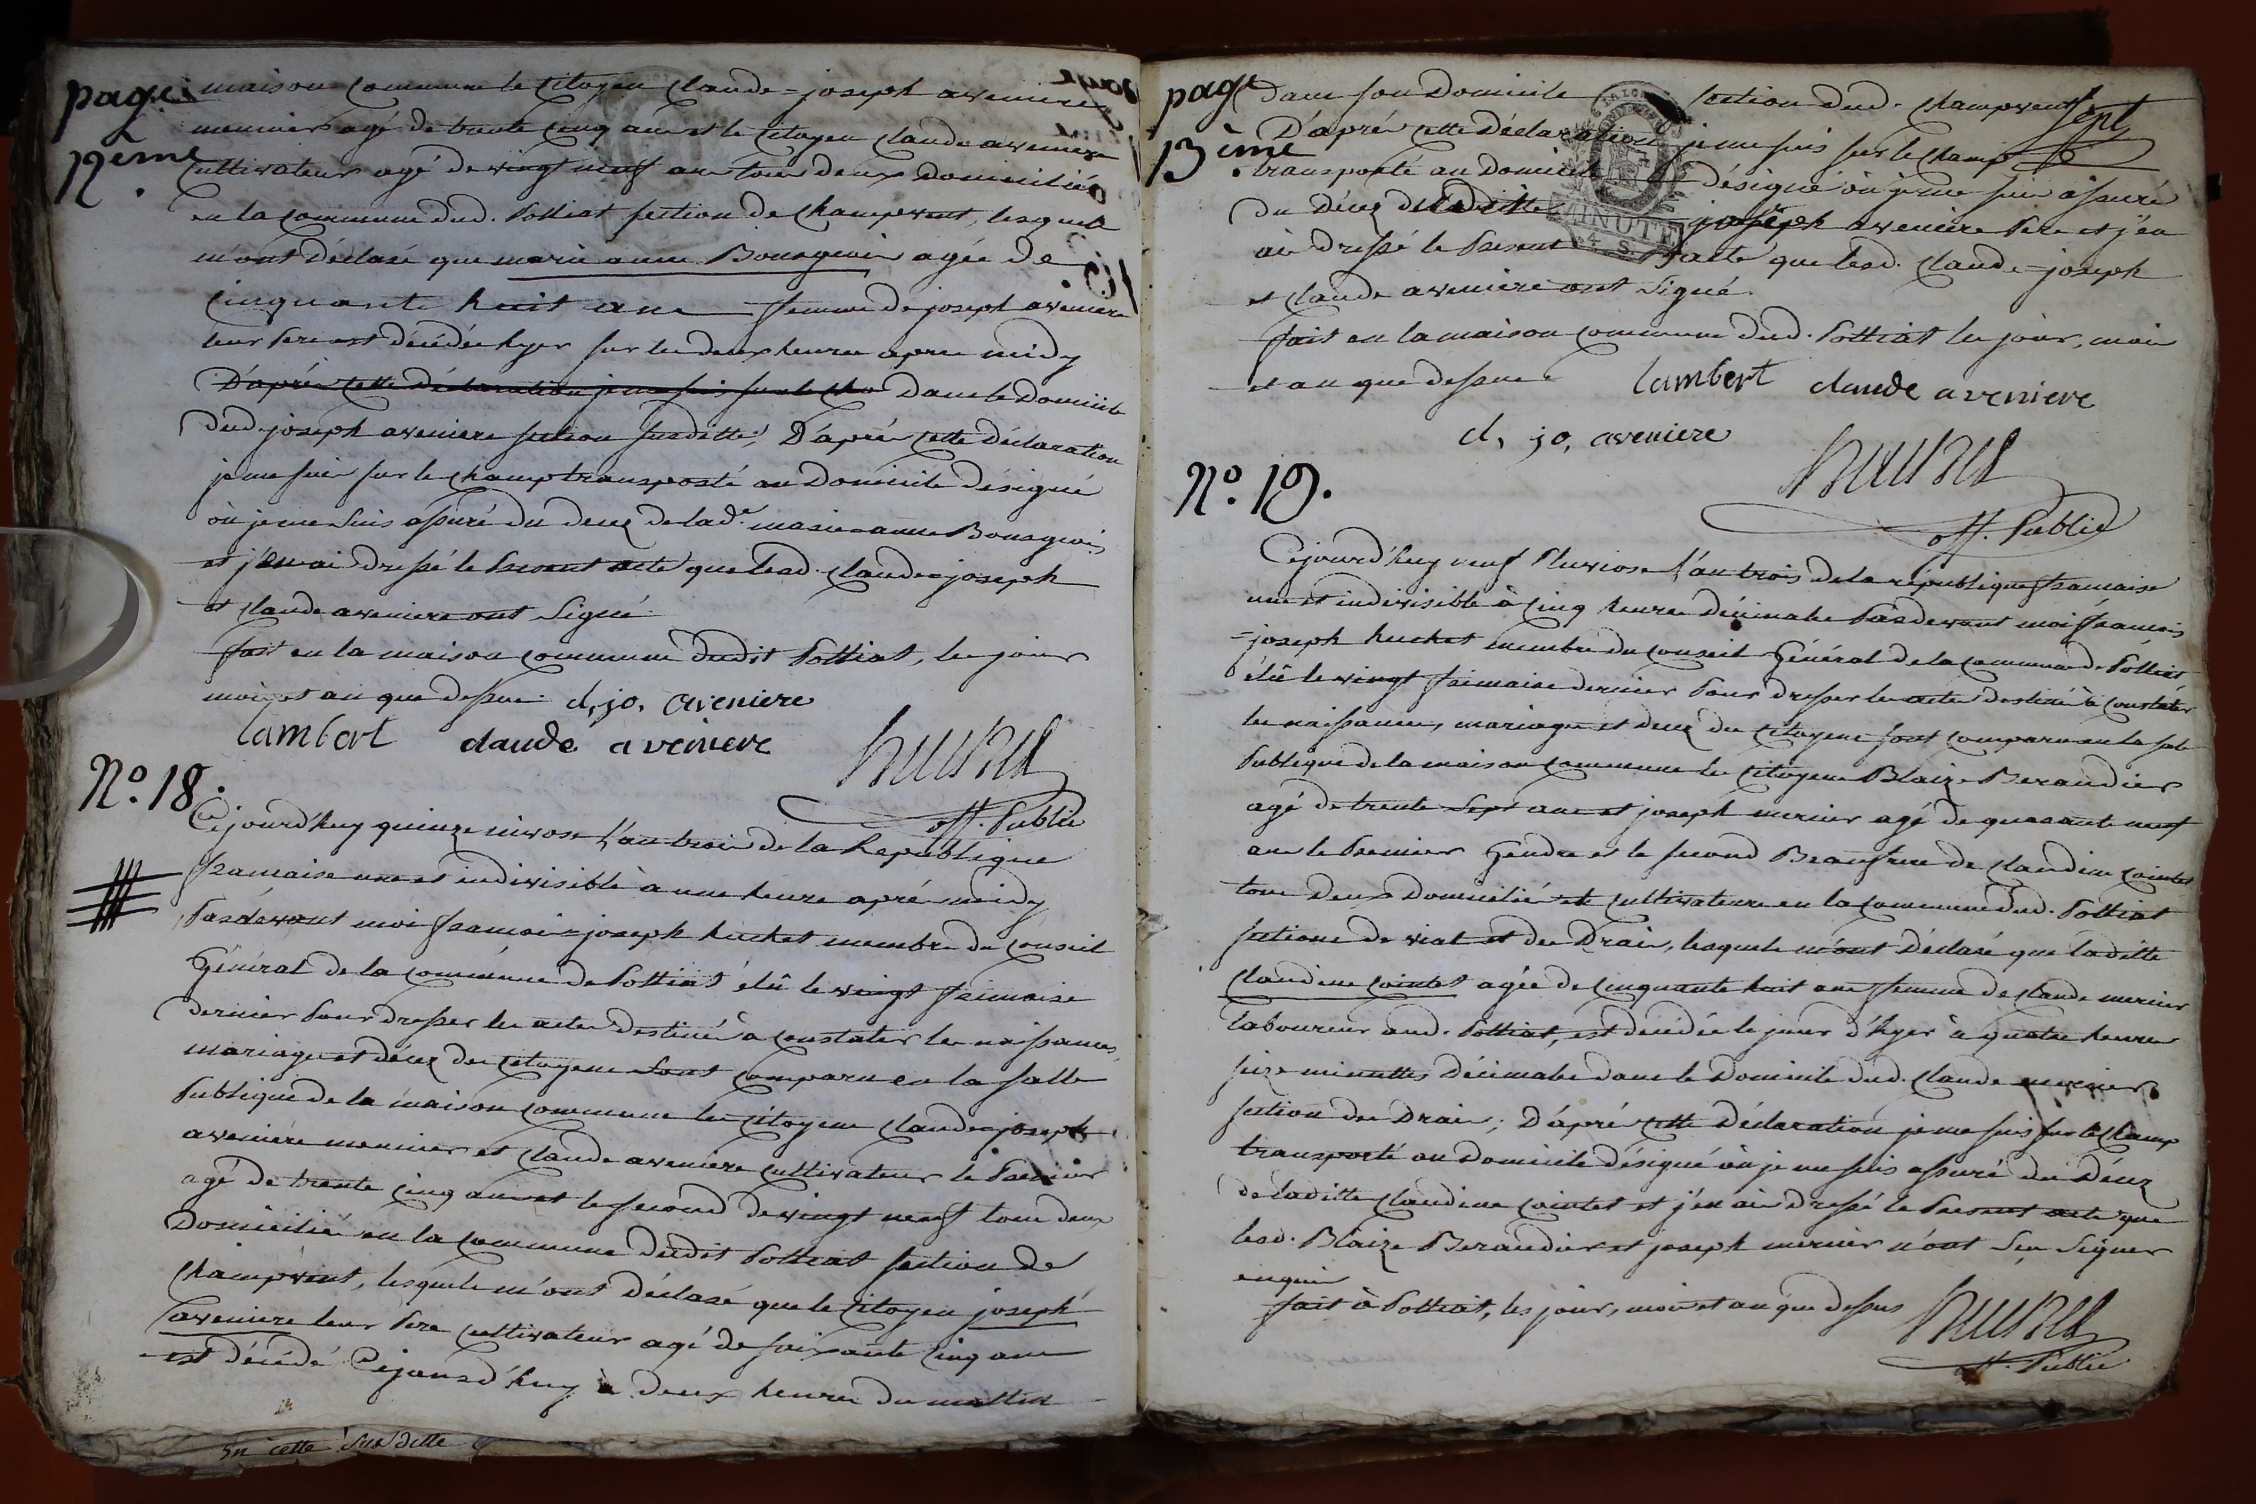 page
12eme
maison commune le citoyen claude=joseph aveniere
meunier agé de trente cinq ans et le citoyen claude aveniere
cultivateur agé de vingt neuf ans tous deux domiciliés
en la commune dud. Polliat section de champvent, lesquels
m'ont déclaré que marie anne Bourgeois agée de
cinquante huit ans femme de joseph aveniere
leur Pere est décédée hyer sur les deux heures apres midy
D'après cette déclaration je me suis sur le cha dans le domicile
dud. joseph aveniere section susditte; D'après cette déclaration
je me suis sur le champ transporté au Domicile désigné
où je me suis assuré du decez de lade. marie=anne Bourgeois
et j'en ai dressé le Present acte que lesd. claude=joseph
et claude aveniere ont signé
fait en la maison commune dudit Polliat, les jour
mois et an que dessus. cl, jo, aveniere
lambert claude aveniere
huchet
off. Public
No. 18.
Cejourd'huy quinze nivose l'an trois de la Republique
française une et indivisible à une heure après midy
Pardevant moi françois=joseph huchet membre du conseil
Général de la commune de Polliat élû le vingt frimaire
dernier Pour dresser les actes destinés à constater les naissances,
mariages et décez des citoyens sont comparu en la salle
Publique de la maison commune les citoyens claude=joseph
aveniere meunier et claude aveniere cultivateur le Premier
agé de trente cinq ans et le second de vingt neuf tous deux
Domiciliés en la commune dudit Polliat section de
champvent, lesquels m'ont déclaré que le citoyen joseph
aveniere leur Pere cultivateur agé de soixante cinq ans
est décédé cejourd'huy à deux heures du mattin
en cette susditte
page
13ème
dans son Domicile section dud. champvent
sept
MINUTE
D'après cette déclaration je me suis sur le champ
transporté au Domicile désigné où je me suis assuré
du Décez dudit joseph aveniere Pere et j'en
ai dressé le Present acte que lesd. claude=joseph
et claude aveniere ont signé.
fait en la maison commune dud. Polliat les jour, mois
et an que dessus. lambert claude aveniere
cl, jo, aveniere
huchet
off. Public
No. 19.
Cejourd'huy neuf Pluviose l'an trois de la republique française
une et indivisible à cinq heures décimales Pardevant moi françois
=joseph huchet membre du conseil Général de la commune de Polliat
élû le vingt frimaire dernier Pour dresser les actes destinés à constater
les naissances, mariages et decez des citoyens sont comparu en la sale
Publique de la maison commune les citoyens Blaize Beraudier
agé de trente sept ans et joseph mercier agé de quarante neuf
ans le Premier Gendre et le second Beaufrere de claudine cointet
tous deux domiciliés et cultivateurs en la commune dud. Polliat
sections de viat et des Drais, lesquels m'ont déclaré que laditte
claudine cointet agée de cinquante huit ans femme de claude mercier
laboureur aud. Polliat, est décédée le jour d'hyer à quatre heures
seize minuttes décimales dans le Domicile dud. claude mercier
section des Drais; D'après cette déclaration je me suis sur le champ
transporté au Domicile désigné où je me suis assuré du Décez
de laditte claudine cointet et j'en ai dressé le Present acte que
lesd. Blaize Beraudier et joseph mercier n'ont sçu signer
enquis
fait à Polliat, les jour, mois et an que dessus
huchet
off. Public